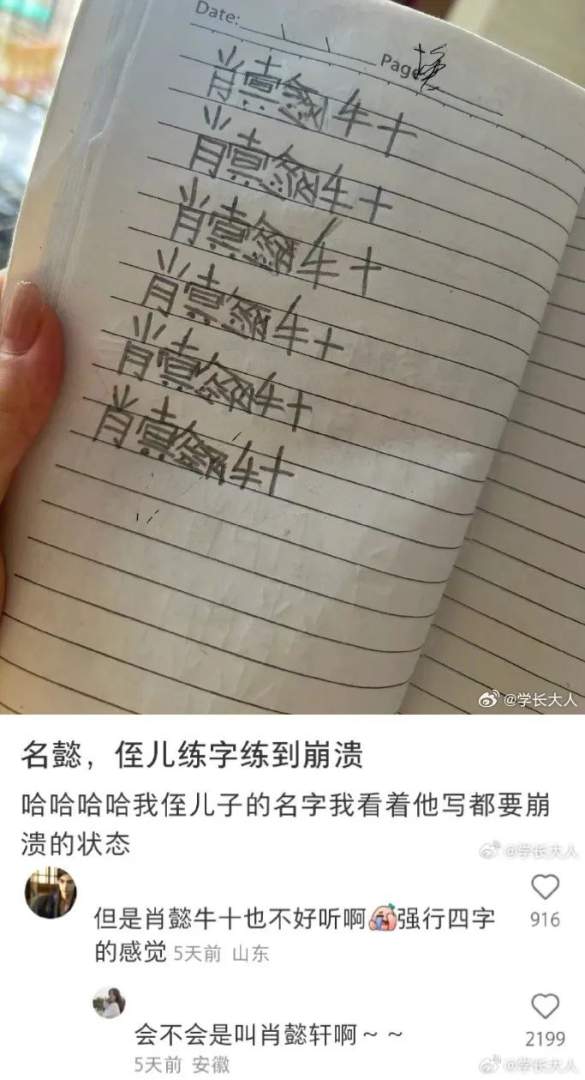 Date:
Page
肖懿牛十
肖懿牛十
肖懿牛十
肖懿牛十
肖懿牛十
肖懿牛十
@学长大人
名懿，侄儿练字练到崩溃
哈哈哈哈我侄儿子的名字我看着他写都要崩
溃的状态
@学长大人
但是肖懿牛十也不好听啊强行四字
的感觉 5天前 山东
916
会不会是叫肖懿轩啊～～
5天前 安徽
2199
@学长大人